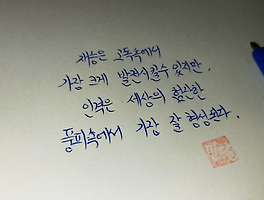 재능은 고독속에서
가장 크게 발전시킬수 있지만,
인격은 세상의 험난한
풍파속에서 가장 잘 형성된다.